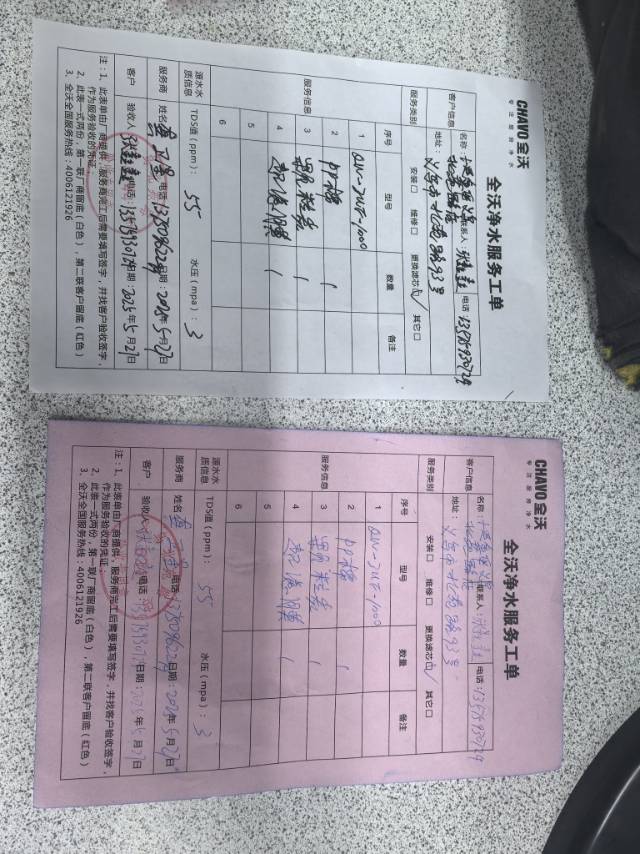 CHAVO全沃
专注智原净水
全沃净水服务工单
客户信息
名称：
联系人：
电话：13575930729
地址：义乌市北苑路93号
服务类别
安装□ 维修□ 更换滤芯☑ 其它□
服务信息
序号 型号 数量 备注
1 QW-JUF-1000
2 PP棉 1
3 果壳粒炭 1
4 超滤膜 1
5
6
源水水质信息
TDS值（ppm）：55
水压（mpa）：3
服务商
姓名：
电话
日期：
5月27日
客户
验收人
电话：
日期：2025年5月27日
注：1、此表单由厂商提供，服务商完工后需要填写签字，并找客户验收签字，
作为服务验收的凭证；
2、此表一式两份，第一联厂商留底（白色），第二联客户留底（红色）
3、全沃全国服务热线：4006121926
CHAVO全沃
全沃净水服务工单
客户信息
名称：
联系人：
电话：13575930729
地址：义乌市北苑路93号
服务类别
安装□ 维修□ 更换滤芯☑ 其它□
服务信息
序号 型号 数量 备注
1 QW-JUF-1000
2 PP棉 1
3 果壳粒炭 1
4 超滤膜 1
5
6
源水水质信息
TDS值（ppm）：55
水压（mpa）：3
服务商
姓名
电话
日期：
5月27日
客户
验收人
电话
日期：2025年5月27日
注：1、此表单由厂商提供，服务商完工后需要填写签字，并找客户验收签字，
作为服务验收的凭证；
2、此表一式两份，第一联厂商留底（白色），第二联客户留底（红色）
3、全沃全国服务热线：4006121926